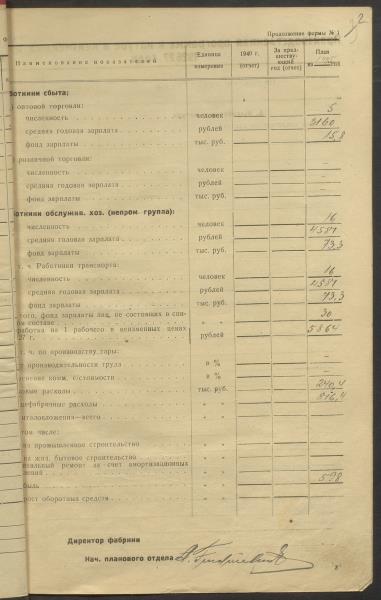 2
Продолжение формы № 1
Наименование показателей
Единица измерения
1940 г. (отчет)
За предшествующий год (отчет)
План на
ботники сбыта:
оптовой торговли: 5
численность человек 2160
средняя годовая зарплата рублей 15,8
фонд зарплаты тыс. руб.
розничной торговли: –
численность человек –
средняя годовая зарплата рублей –
фонд зарплаты тыс. руб.
ботники обслужив. хоз. (непром. группа): 16
численность человек 4581
средняя годовая зарплата рублей 73,3
фонд зарплаты тыс. руб.
т. ч. Работники транспорта: 16
численность человек 4581
средняя годовая зарплата рублей 73,3
фонд зарплаты тыс. руб.
того, фонд зарплаты лиц, не состоящих в спи-
ном составе „ „ 30
работка на 1 рабочего в неизменных ценах 5864
27 г. рублей
т. ч. по производству тары: –
производительности труда в % –
жение комм. с/стоимости в % –
овые расходы тыс. руб. 240,4
цефабричные расходы „ „ 816,4
италовложения—всего „ „
том числе:
на промышленное строительство „ „
на жил. бытовое строительство „ „
тальный ремонт за счет амортизационных
„ „ 598
быль „ „
рост оборотных средств „ „
Директор фабрики
Нач. планового отдела